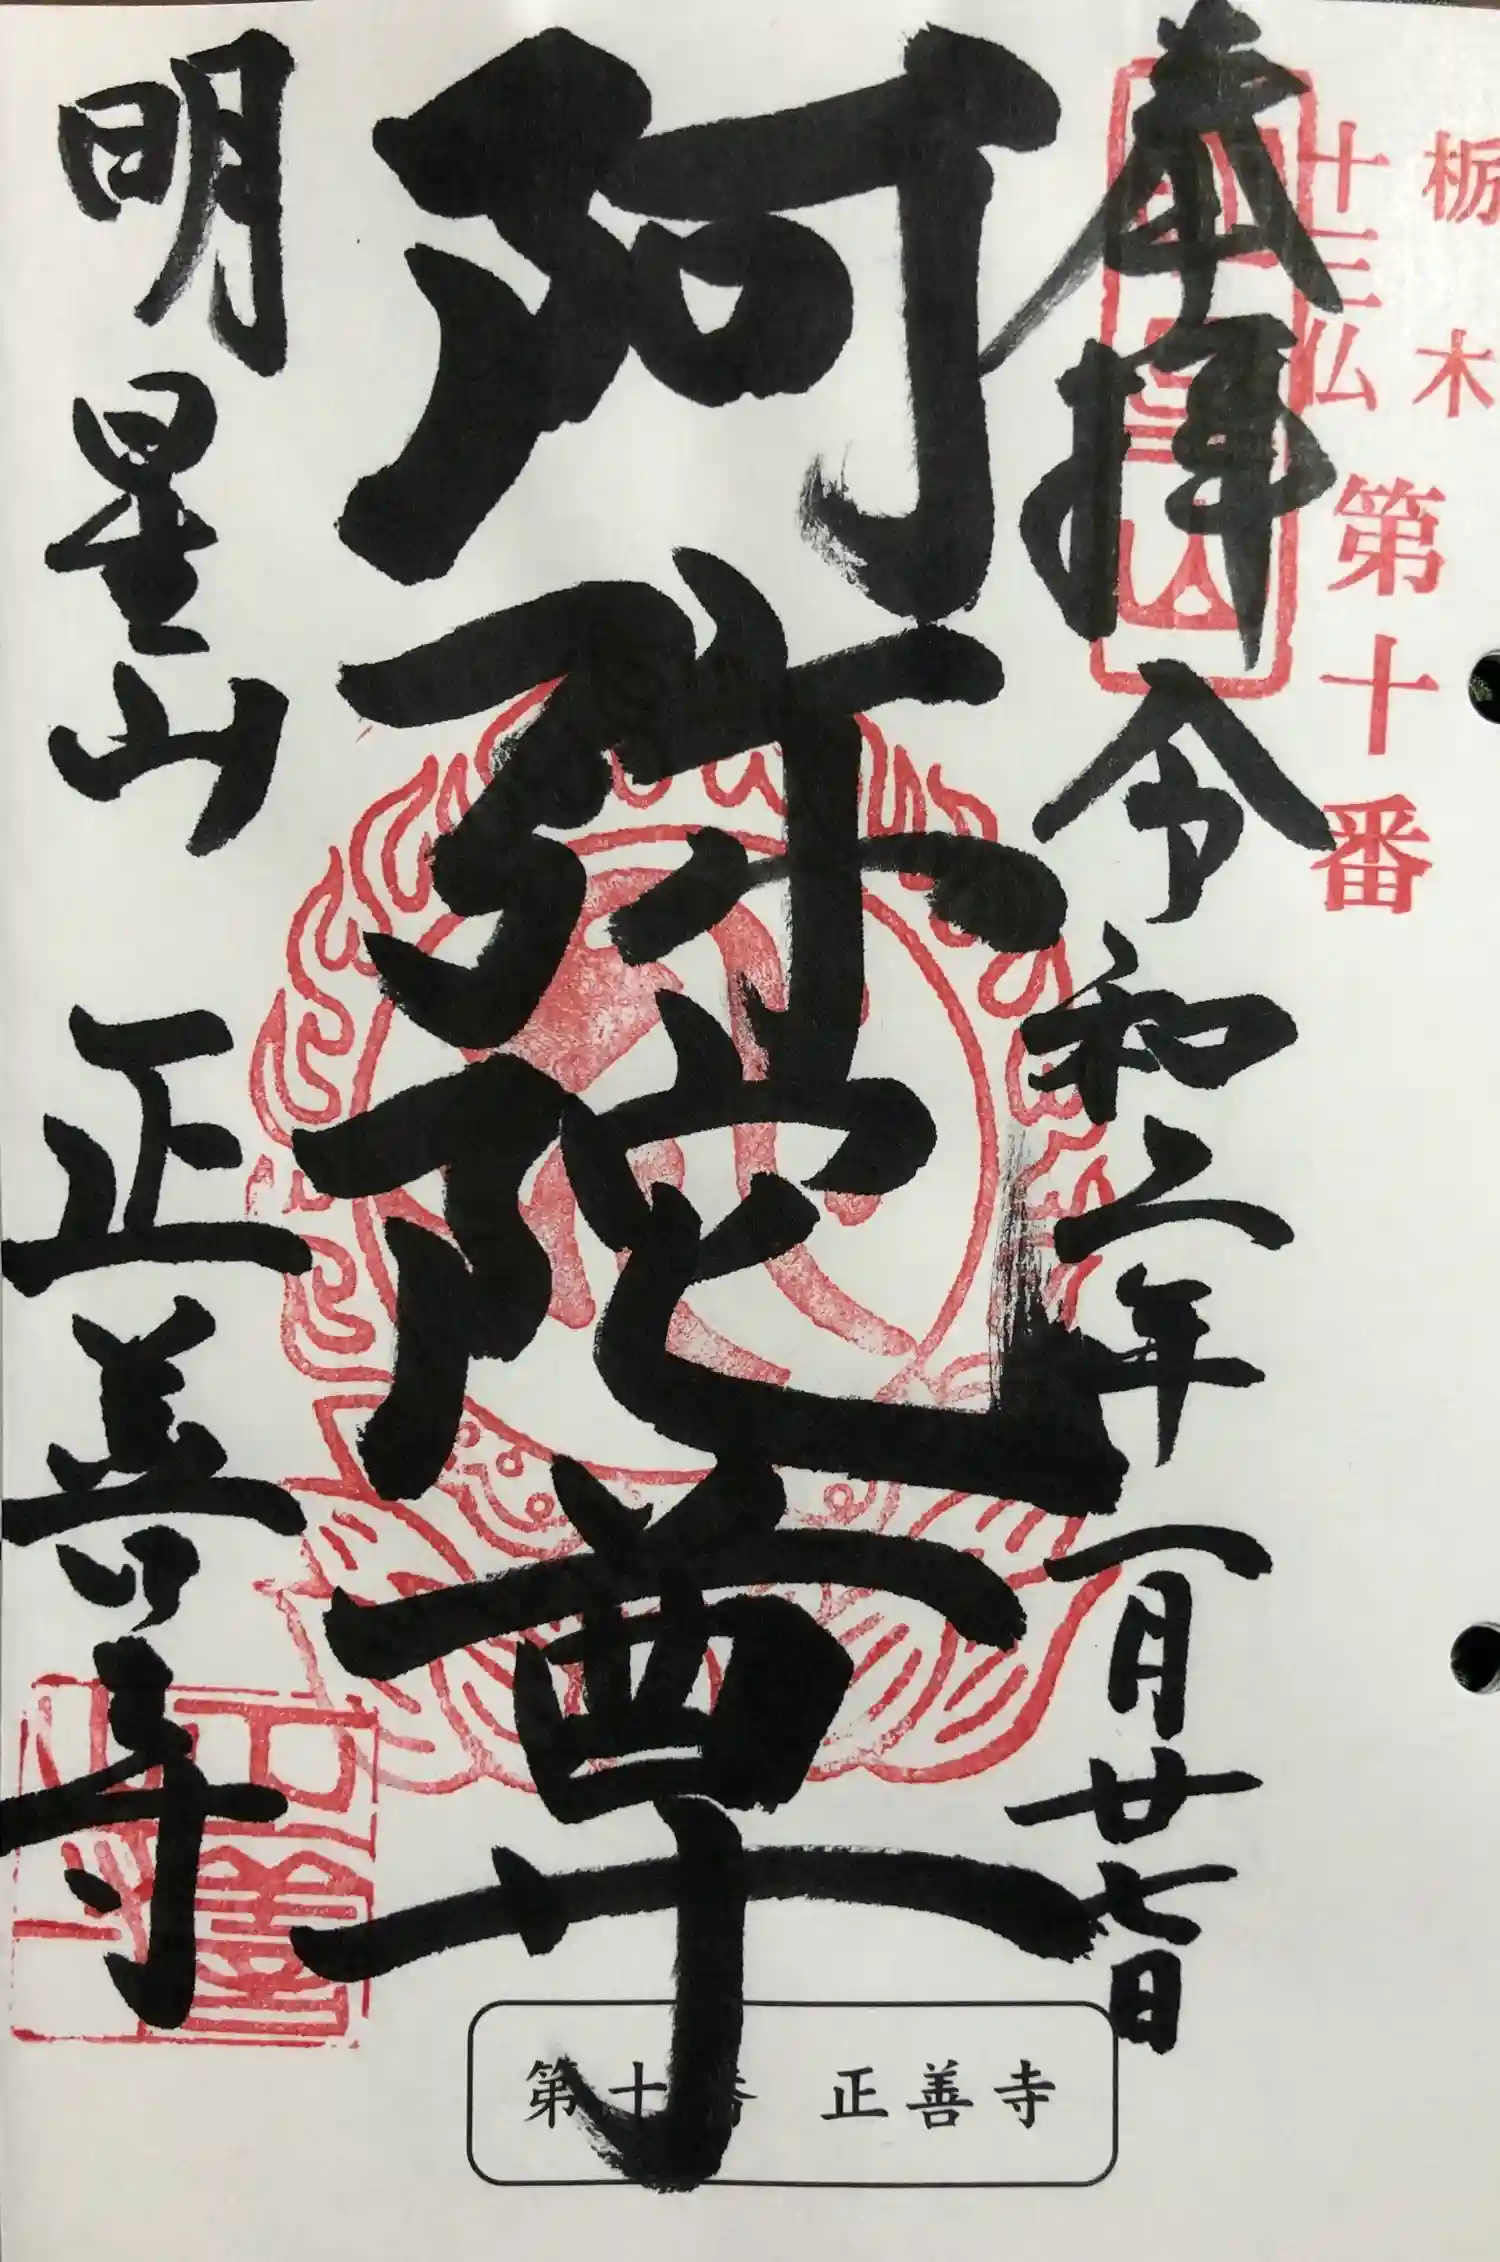 栃木
十三仏
第十番
奉拝 令和二年一月廿七日
阿弥陀尊
明星山 正善寺
第十番 正善寺